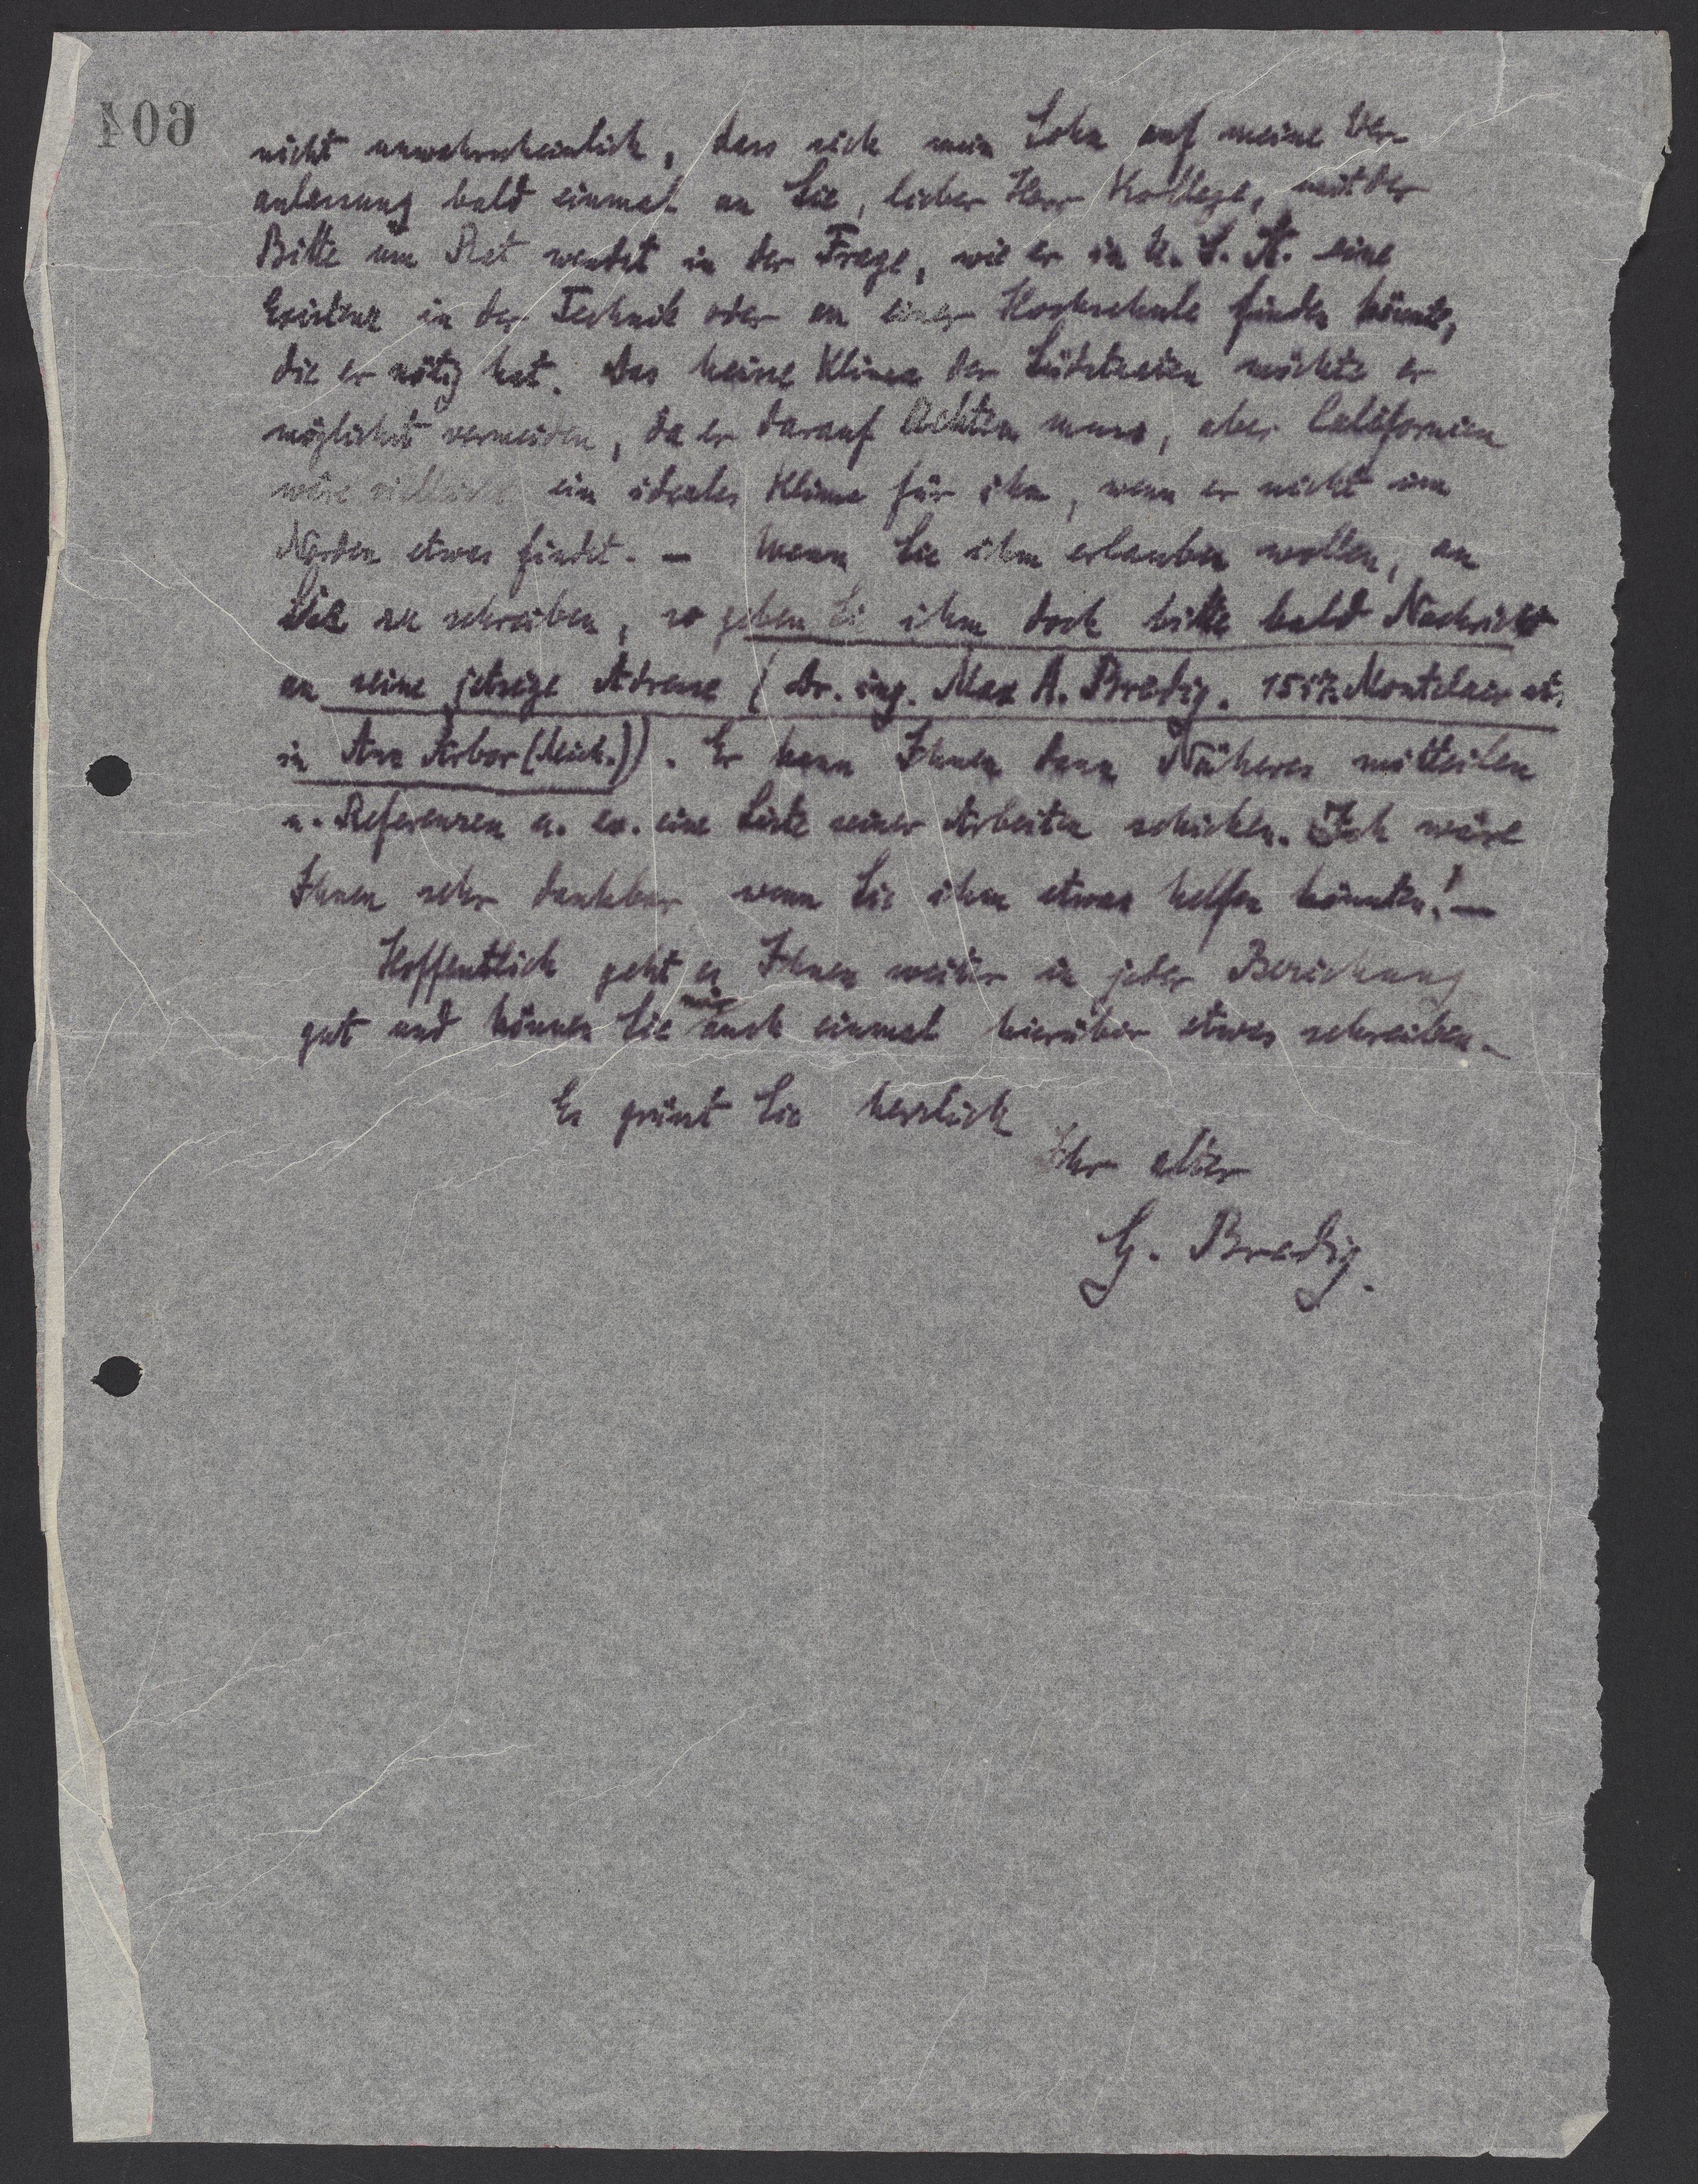 604
nicht unwahrscheinlich, dass sich mein Sohn auf meine Ver-
anlassung bald einmal an Sie, lieber Herr Kollege, mit der
Bitte um Rat wendet in der Frage, wie er in U.S.A. eine
Existenz in der Technik oder an einer Hochschule finden könnte,
die er nötig hat. Das heisse Klima der Südstaaten möchte er
möglichst vermeiden, da er darauf achten muss, aber Californien
wäre vielleicht ein ideales Klima für ihn, wenn er nicht im
Norden etwas findet. — Wenn Sie ihm erlauben wollen, an
Sie zu schreiben, so geben Sie ihm doch bitte bald Nachricht
an seine jetzige Adresse (Dr. ing. Max A. Bredig. Montclair
in Ann Arbor (Mich.)). Er kann Ihnen dann Näheres mitteilen
u. Referenzen u. ev. eine Liste seiner Arbeiten schicken. Ich wäre
Ihnen sehr dankbar wenn Sie ihm etwas helfen könnten! —
Hoffentlich geht es Ihnen weiter in jeder Beziehung
gut und können Sie mir auch einmal hierüber etwas schreiben. —
Es grüsst Sie herzlich
Ihr alter
G. Bredig.